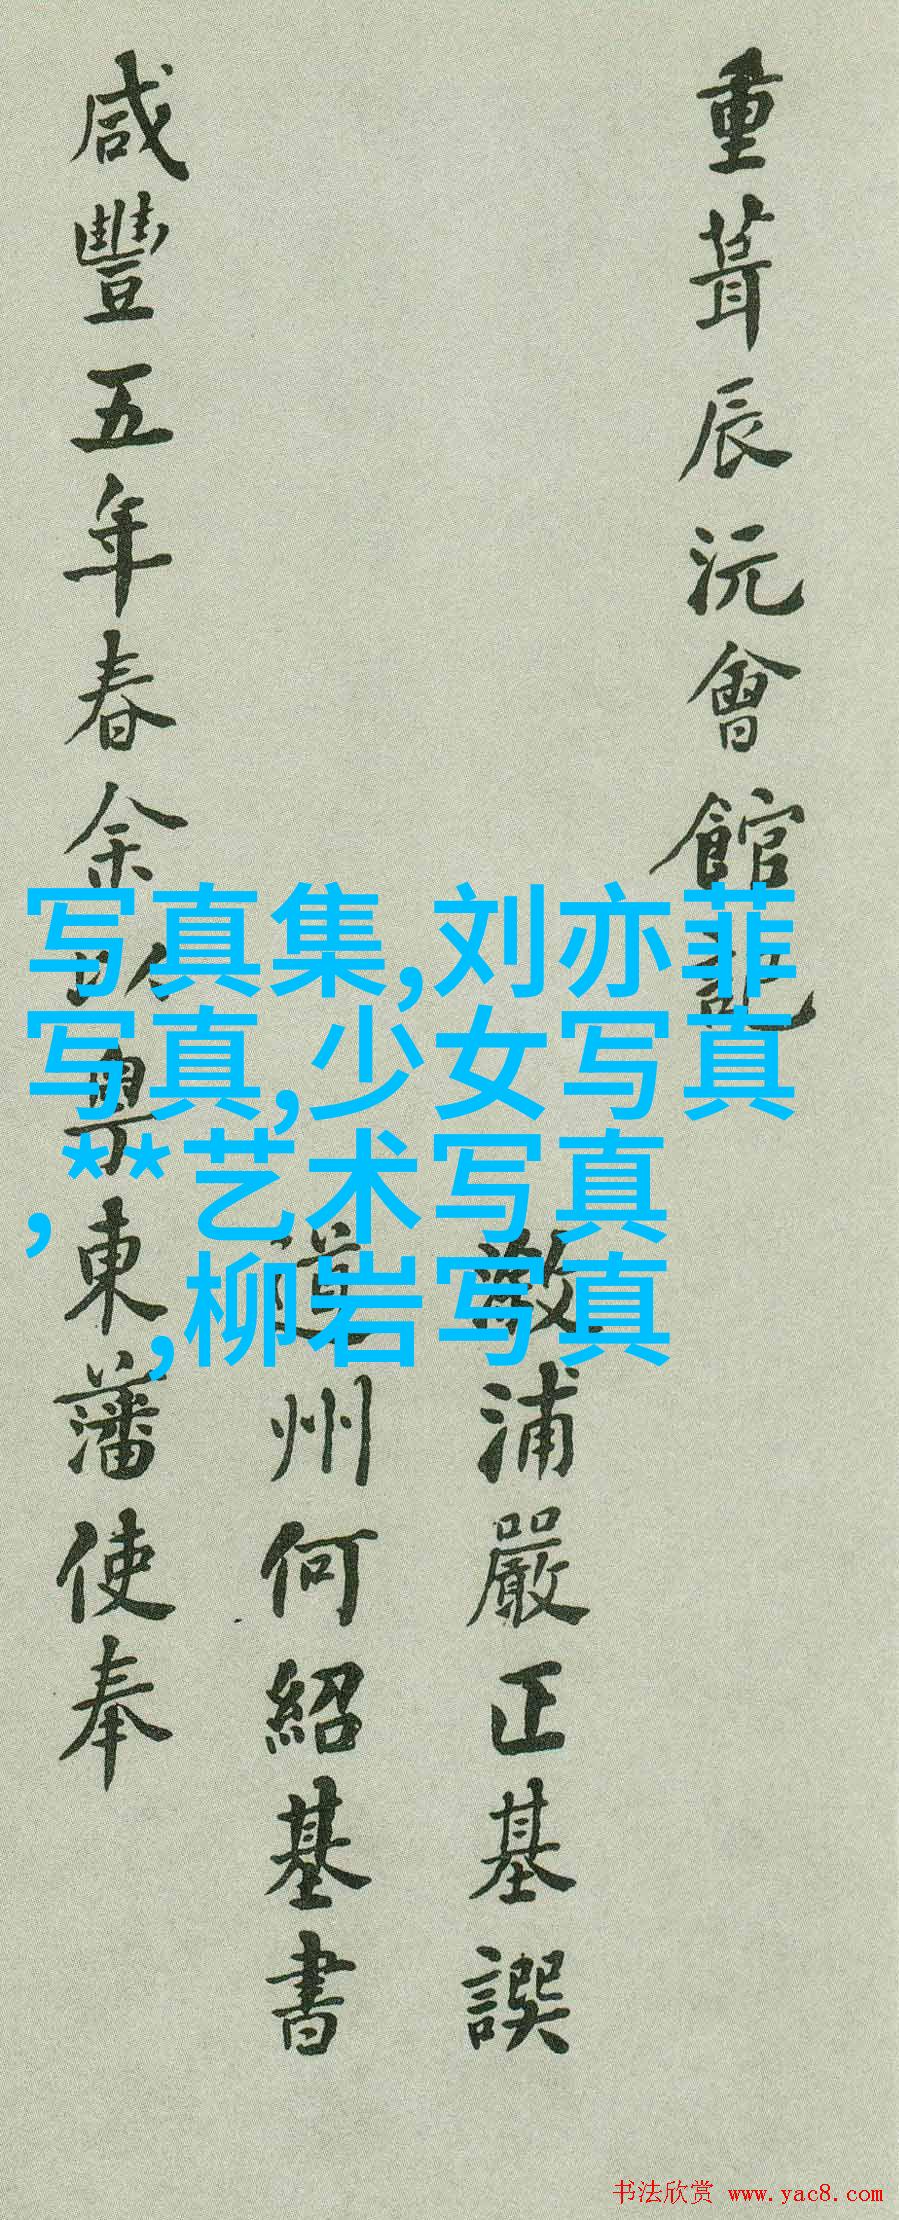 重葺辰沅會館記
漵浦嚴正基譔
道州何紹基書
咸豐五年春余以粵東藩使奉
写真集,刘亦菲
写真,少女写真
,**艺术写真
,柳岩写真
书法欣赏 www.yac8.com